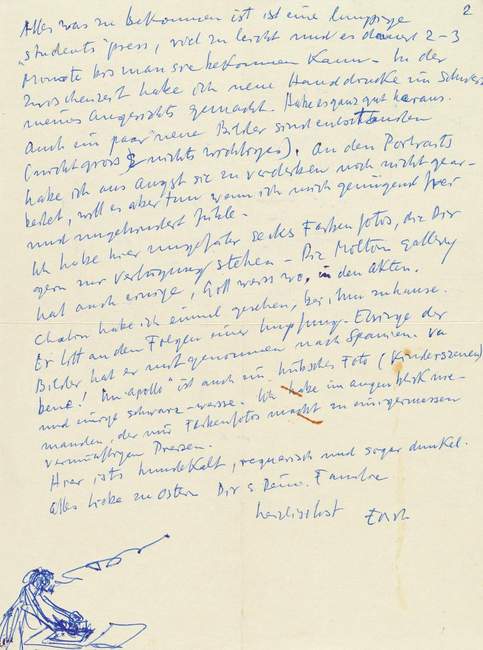 2
Alles was zu bekommen ist ist eine lumpige
"students" press, viel zu leicht und es dauert 2-3
Monate bis man sie bekommen kann - In der
Zwischenzeit habe ich neue Handdrucke im Schweiss
meines Angesichts gemacht. Habe es ganz gut heraus.
Auch ein paar neue Bilder sind entstanden
(nicht gross & nichts wichtiges). An den Portraits
habe ich aus Angst sie zu verderben noch nicht gear-
beitet, will es aber tun wenn ich mich genügend frei
und ungehindert fühle.
Ich habe hier ungefähr sechs Farbenfotos, die Dir
gern zur Verfügung stehen - Die Molton Gallery
hat auch einige, Gott weiss wo, in den Akten.
habe ich einmal gesehen, bei ihm zuhause.
Er litt an den Folgen einer Impfung. Einige der
Bilder hat er mitgenommen nach Spanien. Va
bene! Im "Apollo" ist auch ein hübsches Foto (Kinderszenen)
und einige schwarz-weisse. Ich habe im Augenblick nie-
manden, der mir Farbenfotos macht zu einigermassen
vernünftigen Preisen.
Hier ists hundekalt, regnerisch und sogar dunkel.
Alles Liebe zu Ostern Dir & Deiner Familie
herzlichst